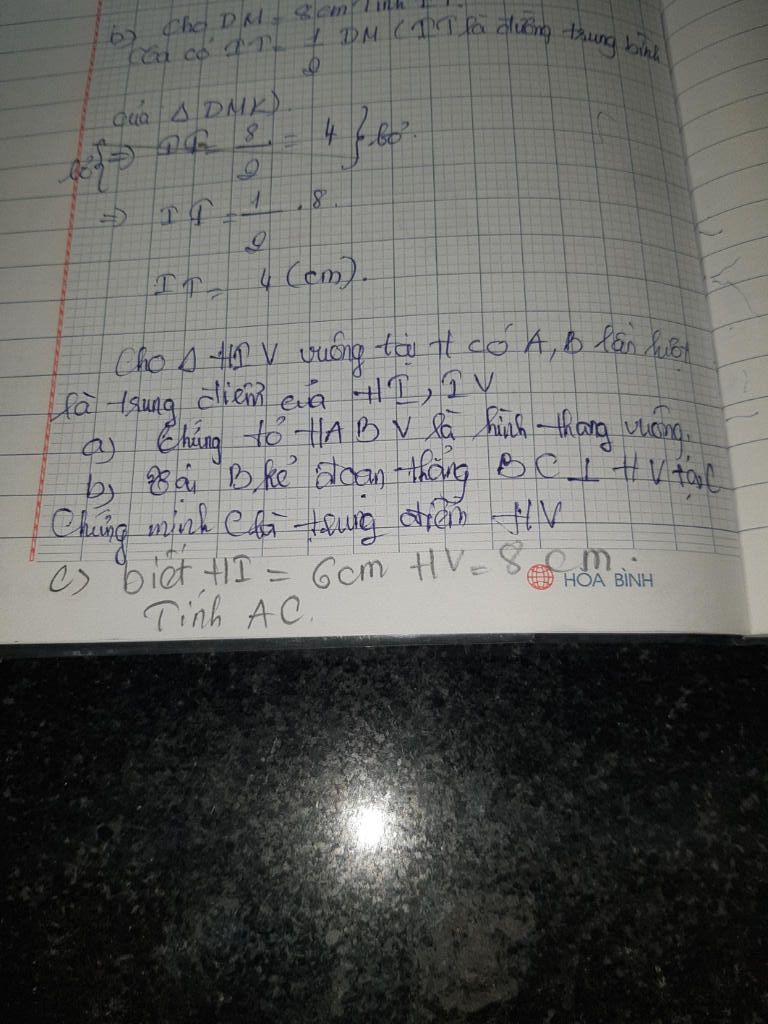 b) Cho DM = 8cm Tính I
Ta có IT = 1/2 DM (IT là đường trung bình
của Δ DMK).
bỏ { => IT = 8/2 = 4 } bỏ.
=> IT = 1/2 . 8.
IT = 4 (cm).
Cho Δ HIV vuông tại H có A, B lần lượt
là trung điểm của HI, IV
a) Chứng tỏ HABV là hình thang vuông.
b) Tại B kẻ đoạn thẳng BC ⊥ HV tại C
Chứng minh C là trung điểm HV
c) biết HI = 6cm HV = 8 cm.
HÒA BÌNH
Tính AC.